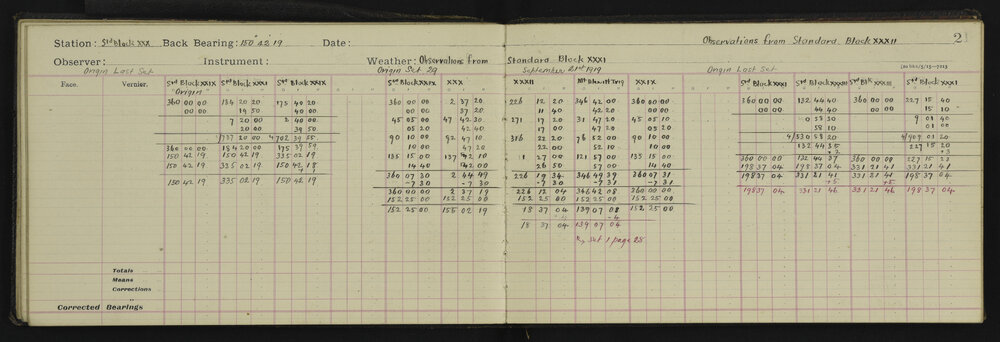 Station: Std Block XXX Back Bearing: 150 42 19 Date: Observations from Standard Block XXXII 21
Observer: Instrument: Weather: Observations from Standard Block XXXI
Origin Last Set Origin Set 29 September 2nd 1919 Origin Last Set
Face. Vernier. Std Block XXIX Std Block XXXI Std Block XXIX Std Block XXIX XXX XXXII Mt Blackett Trig XXIX Std Block XXXI Std Block XXXIII Std Block XXXI
"Origin"
360 00 00 184 20 20 175 40 20 360 00 00 2 37 20 226 12 20 346 42 00 360 00 00 360 00 00 132 44 40 360 00 00 227 15 40
00 00 19 50 40 00 00 00 37 20 11 40 42 20 00 00 00 00 44 40 00 00 15 10
7 20 00 2 40 00 45 05 00 47 42 30 271 17 20 31 47 20 45 05 10 0 58 30 9 01 40
20 00 39 50 05 20 42 40 17 00 47 20 05 20 58 10 01 00
4/737 20 00 4/702 39 55 90 10 00 92 47 10 316 22 20 76 52 00 90 10 00 4/530 58 20 4/909 01 20
360 00 00 184 20 00 175 39 59 10 00 47 20 22 00 52 10 10 00 132 44 35 227 15 20
150 42 19 150 42 19 335 02 19 135 15 00 137 42 10 1 27 00 121 57 00 135 15 00 360 00 00 132 44 37 360 00 00 227 15 23
150 42 19 335 02 19 150 42 18 14 40 42 00 26 50 57 00 14 40 198 37 04 198 37 04 331 21 41 331 21 41
360 07 30 2 44 49 226 19 34 346 49 39 360 07 31 198 37 04 331 21 41 198 37 04
150 42 19 335 02 19 150 42 19 -7 30 -7 30 -7 30 -7 31 -7 31 +5 +5
360 00 00 2 37 19 226 12 04 346 42 08 360 00 00 198 37 04 331 21 46 331 21 46 198 37 04
152 25 00 152 25 00 152 25 00 152 25 00 152 25 00
152 25 00 155 02 19 18 37 04 139 07 08 152 25 00
-4
18 37 04 139 07 04
set 1 page 25
Totals
Means
Corrections
Corrected Bearings